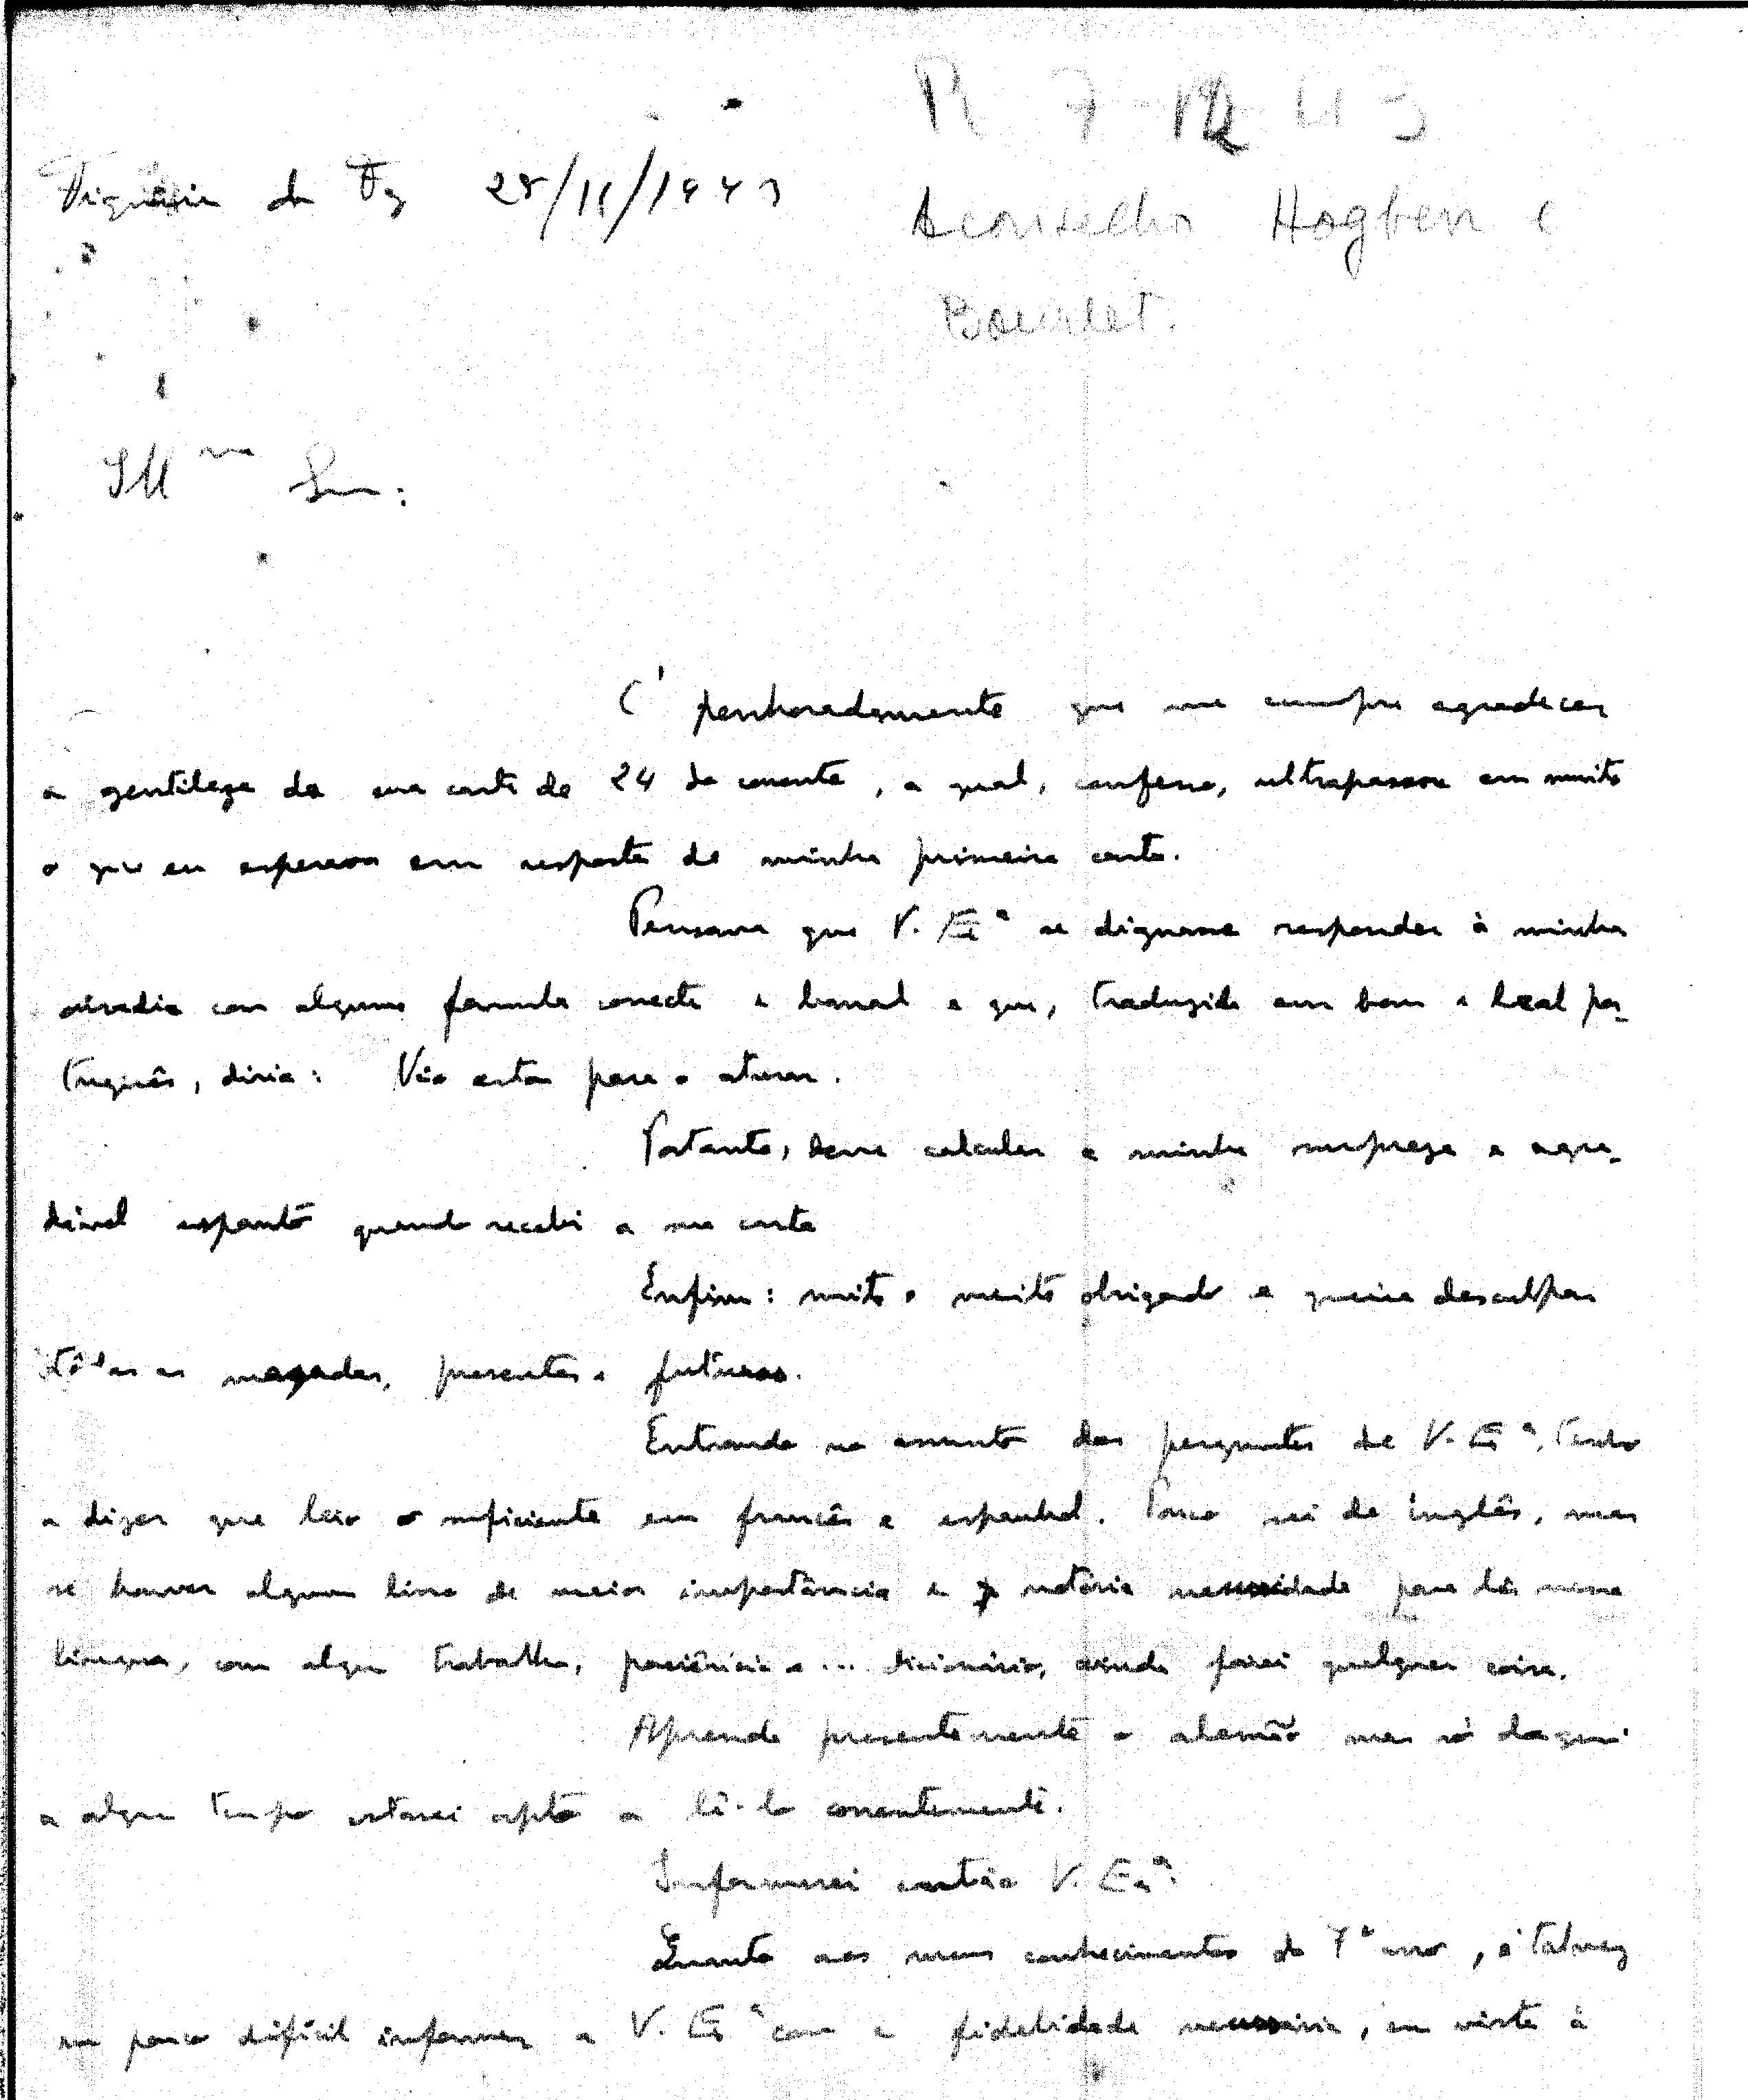 R 7-12-43
Figueira da Foz 28/11/1943
Aconselho Hogben e
Bourlet.
Ill^mo Snr:
É penhoradamente que me cumpre agradecer
a gentileza da sua carta de 24 do corrente, a qual, confesso, ultrapassou em muito
o que eu esperava em resposta de minha primeira carta.
Pensava que V. Ex.ª se dignasse responder à minha
ousadia com alguma fórmula correcta e banal e que, traduzida em bom e leal por-
tuguês, diria: Não estou para o aturar.
Portanto, deve calcular a minha surpreza e agra-
dável espanto quando recebi a sua carta
Enfim: muito e muito obrigado e queira desculpar
tôdas as maçadas, presentes e futuras.
Entrando no assunto das perguntas de V. Ex.ª, tenho
a dizer que leio o suficiente em francês e espanhol. Pouco sei de inglês, mas
se houver algum livro de maior importância e notória necessidade para lêr nessa
língua, com algum trabalho, paciência e... dicionário, ainda farei qualquer coisa.
Aprendo presentemente o alemão mas só daqui
a algum tempo estarei apto a lê-lo correntemente.
Informarei então V. Ex.ª
Quanto aos meus conhecimentos do 7º ano, é talvez
um pouco difícil informar a V. Ex.ª com a fidelidade necessária, em vista à